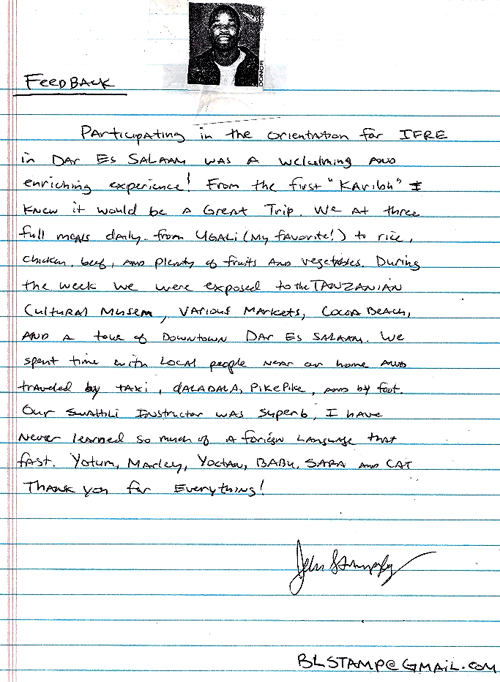 DONOR
FeedBack
Participating in the orientation for IFRE
in Dar Es Salaam was a welcoming and
enriching experience! From the first "Karibu" I
knew it would be a Great Trip. We at three
full meals daily - from UGALI (my favorite!) to rice,
chicken, beef, and plenty of fruits and vegetables. During
the week we were exposed to the TANZANIAN
Cultural Musem, various Markets, Cocoa Beach,
and a tour of Downtown Dar Es Salaam. We
spent time with local people near our home and
traveled by taxi, daladala, PikePike, and by foot.
Our Swahili Instructor was superb, I have
never learned so much of a foreign language that
fast. Yotum, Marley, Yoctan, Babu, SARA and CAT
Thank you for Everything!
BLSTAMP@GMAIL.COM